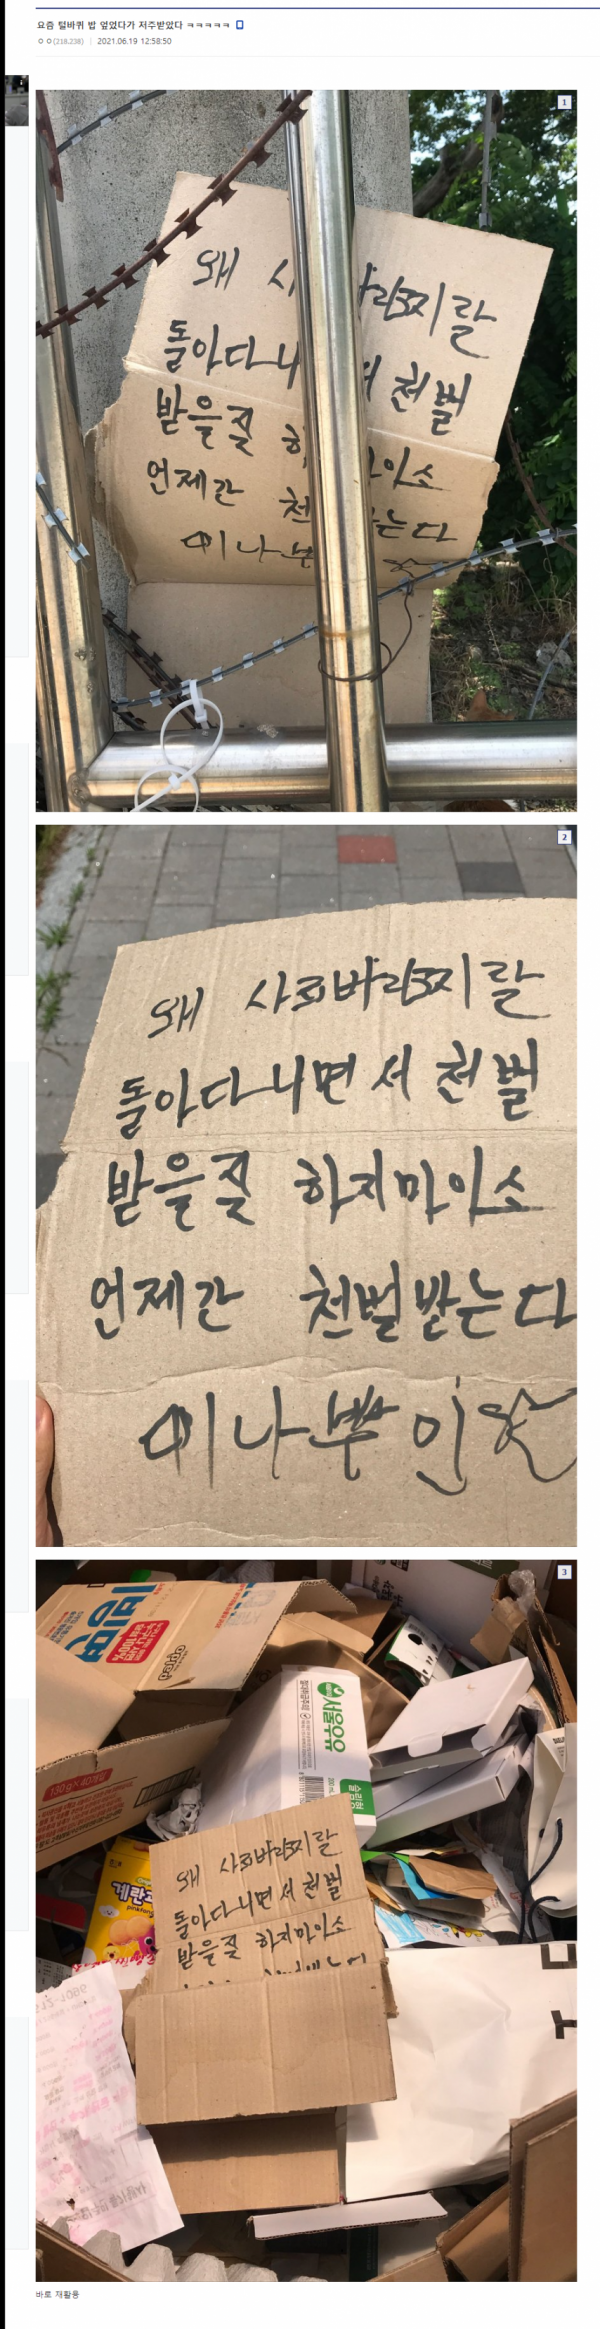 요즘 털바퀴 밥 엎었다가 저주받았다 ㅋㅋㅋㅋㅋ
ㅇㅇ(218.238) | 2021.06.19 12:58:50
1
왜
돌아다니 천벌
받을짓
언제간
2
왜 사료바리지랄
돌아다니면서 천벌
받을짓 하지마이소
언제간 천벌받는다
이나쁜인
3
서울우유
계란과
pinkfong
왜 사료바리지랄
돌아다니면서 천벌
받을짓 하지마이소
바로 재활용